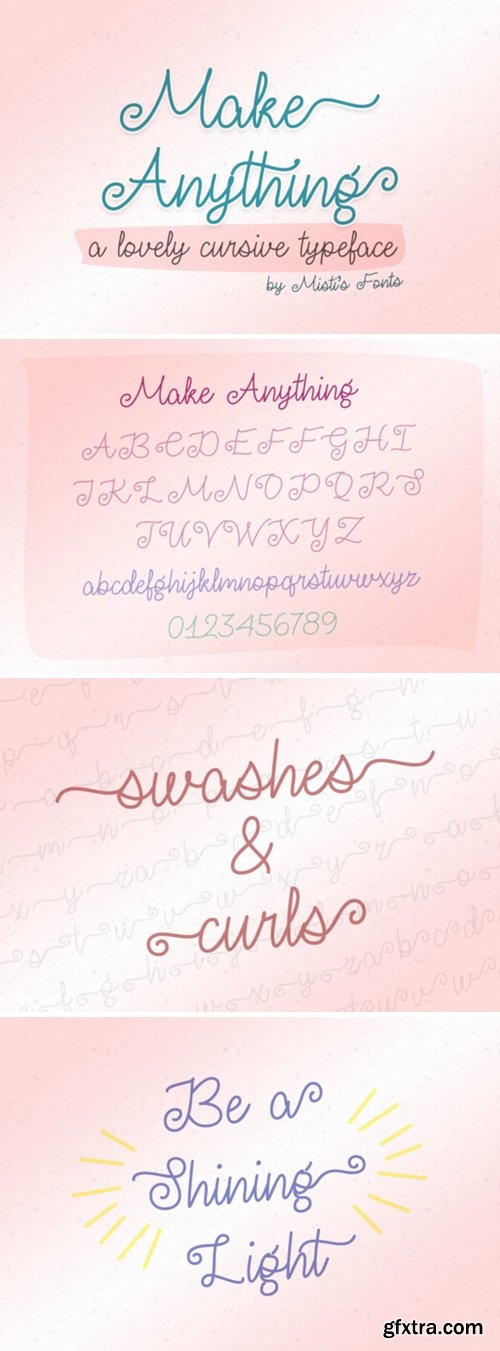 Make
Anything
a lovely cursive typeface
by Misti's Fonts
Make Anything
ABCDEFFGHI
JKLMNOPQRS
TUVWXYZ
abcdefghijklmnopqrstuvwxyz
0123456789
swashes
&
curls
Be a
Shining
Light
gfxtra.com